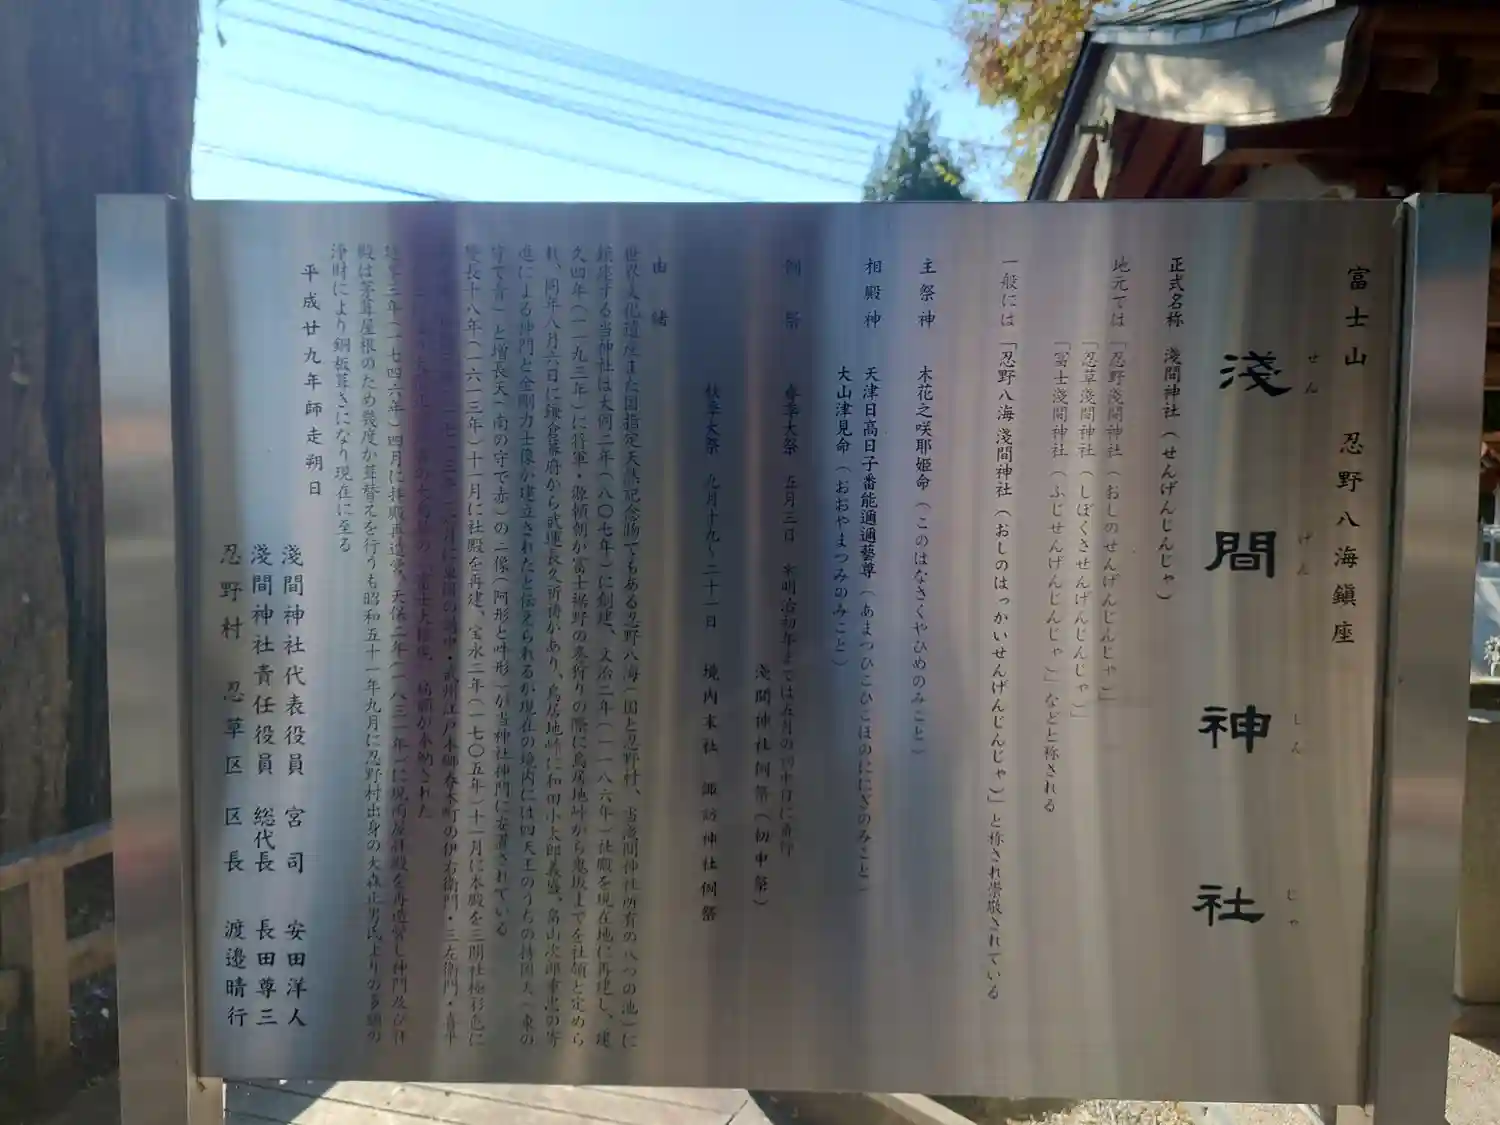 富士山　忍野八海鎮座
淺間神社
せんげんしんじゃ
正式名称　淺間神社（せんげんじんじゃ）
地元では「忍野淺間神社（おしのせんげんじんじゃ）」
「忍草淺間神社（しぼくさせんげんじんじゃ）」
「富士淺間神社（ふじせんげんじんじゃ）」などと称される
一般には「忍野八海 淺間神社（おしのはっかいせんげんじんじゃ）」と称され崇敬されている
主祭神　木花之咲耶姫命（このはなさくやひめのみこと）
相殿神　天津日高日子番能邇邇藝尊（あまつひこひこほのににぎのみこと）
大山津見命（おおやまつみのみこと）
例祭　春季大祭　五月三日　※明治初年までは五月の初申日に斎行
淺間神社例祭（初申祭）
秋季大祭　九月十九～二十一日　境内末社　諏訪神社例祭
由緒
世界文化遺産また国指定天然記念物でもある忍野八海（国と忍野村、当淺間神社所有の八つの池）に
鎮座する当神社は大同二年（八〇七年）に創建、文治二年（一一八六年）社殿を現在地に再建し、建
久四年（一一九三年）に将軍・源頼朝が富士裾野の巻狩りの際に鳥居地峠から鬼坂上でを社領と定めら
れ、同年八月六日に鎌倉幕府から武運長久祈祷があり、鳥居地峠に和田小太郎義盛、畠山次郎重忠の寄
進による神門と金剛力士像が建立されたと伝えられるが現在の境内には四天王のうちの持国天（東の
守で青）と増長天（南の守で赤）の二像（阿形と吽形）が当神社神門に安置されている
慶長十八年（一六一三年）十一月に社殿を再建、宝永二年（一七〇五年）十一月に本殿を三間社極彩色に
武州江戸本郷春木町の伊右衛門・三左衛門・喜平
が奉納された
延享三年（一七四六年）四月に拝殿再造営、天保二年（一八三一年）に現両屋拝殿を再造営し神門及び拝
殿は茅葺屋根のため幾度か葺替えを行うも昭和五十一年九月に忍野村出身の大森正男氏よりの多額の
浄財により銅板葺きになり現在に至る
平成廿九年師走朔日
淺間神社代表役員　宮司　安田洋人
淺間神社責任役員　総代長　長田尊三
忍野村　忍草区　区長　渡邉晴行